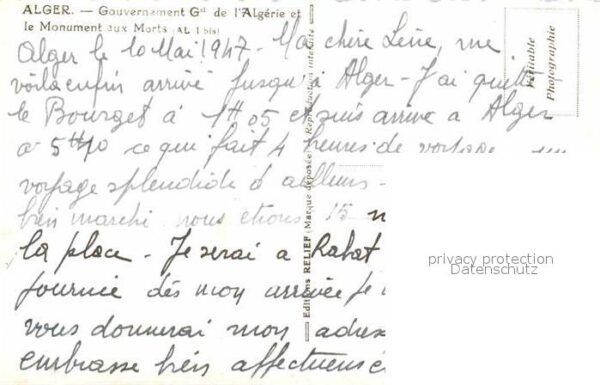 ALGER. — Gouvernement Gᵃˡ de l'Algérie et
le Monument aux Morts (AL 1 bis)
Alger le 10 Mai 1947 - Ma chère me
voila enfin arrivé jusqu'à Alger - J'ai quitté
le Bourget à 1H05 et suis arrivé à Alger
à ce qui fait 4 heures de
voyage splendide d'ailleurs -
bien marché nous etions 15
la place - Je serai à Rabat
journée dès mon arrivée je
vous donnerai mon
embrasse bien
Editions RELIEF (Marque déposée) - Reproduction interdite
Véritable
Photographie
privacy protection
Datenschutz